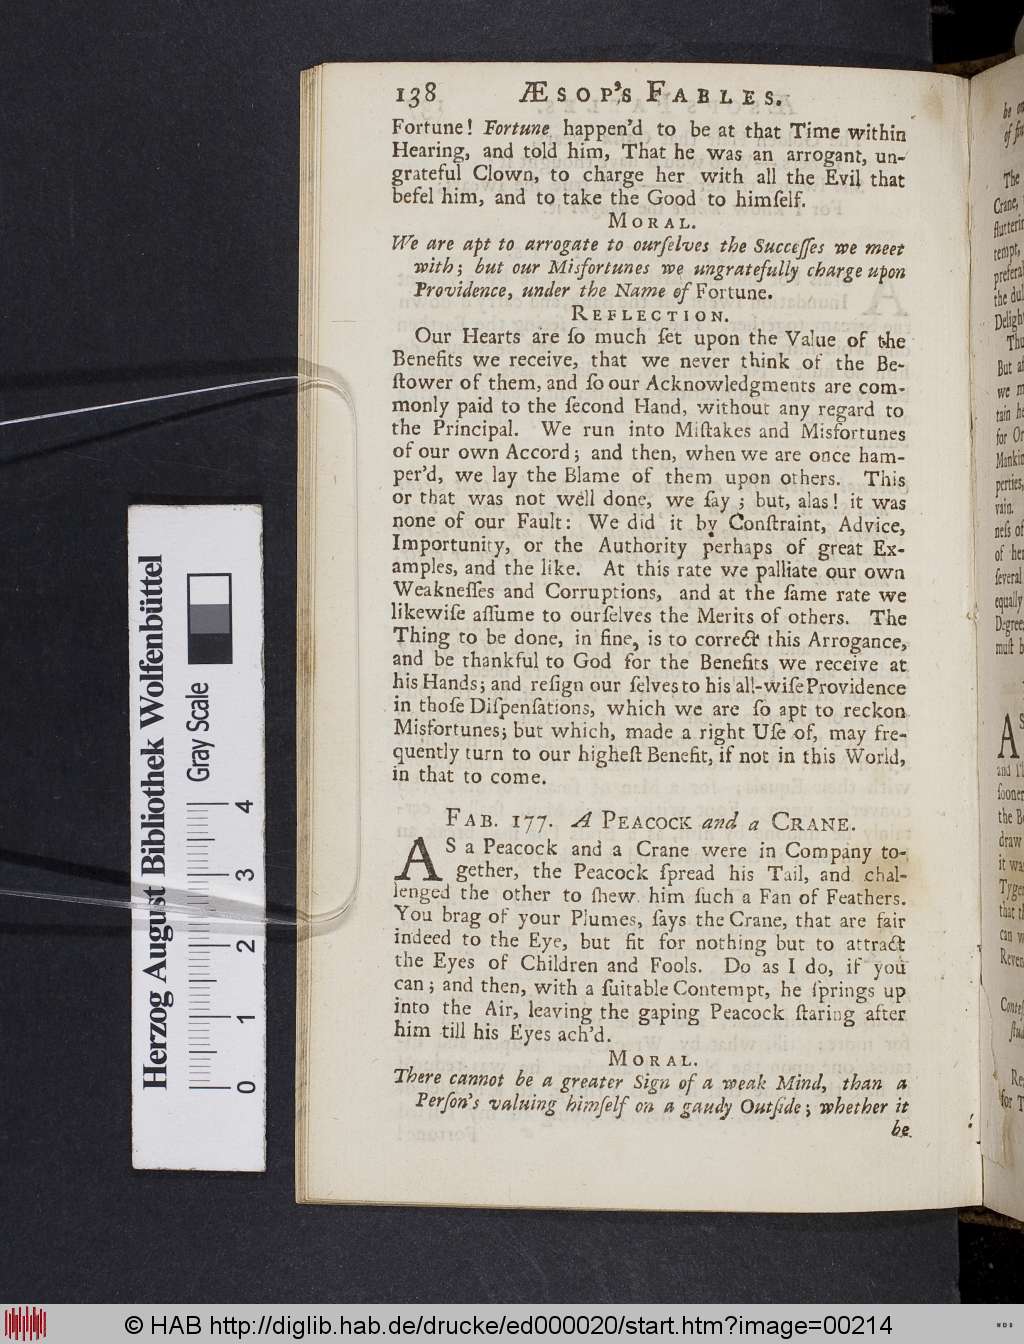 138 ÆSOP'S FABLES.
Fortune! Fortune happen'd to be at that Time within
Hearing, and told him, That he was an arrogant, un-
grateful Clown, to charge her with all the Evil that
befel him, and to take the Good to himſelf.
MORAL.
We are apt to arrogate to ourſelves the Succeſſes we meet
with; but our Misfortunes we ungratefully charge upon
Providence, under the Name of Fortune.
REFLECTION.
Our Hearts are ſo much ſet upon the Value of the
Benefits we receive, that we never think of the Be-
ſtower of them, and ſo our Acknowledgments are com-
monly paid to the ſecond Hand, without any regard to
the Principal. We run into Miſtakes and Misfortunes
of our own Accord; and then, when we are once ham-
per'd, we lay the Blame of them upon others. This
or that was not well done, we ſay; but, alas! it was
none of our Fault: We did it by Conſtraint, Advice,
Importunity, or the Authority perhaps of great Ex-
amples, and the like. At this rate we palliate our own
Weakneſſes and Corruptions, and at the ſame rate we
likewiſe aſſume to ourſelves the Merits of others. The
Thing to be done, in fine, is to correct this Arrogance,
and be thankful to God for the Benefits we receive at
his Hands; and reſign our ſelves to his all-wiſe Providence
in thoſe Diſpenſations, which we are ſo apt to reckon
Misfortunes; but which, made a right Uſe of, may fre-
quently turn to our higheſt Benefit, if not in this World,
in that to come.
FAB. 177. A PEACOCK and a CRANE.
AS a Peacock and a Crane were in Company to-
gether, the Peacock ſpread his Tail, and chal-
lenged the other to ſhew him ſuch a Fan of Feathers.
You brag of your Plumes, ſays the Crane, that are fair
indeed to the Eye, but fit for nothing but to attract
the Eyes of Children and Fools. Do as I do, if you
can; and then, with a ſuitable Contempt, he ſprings up
into the Air, leaving the gaping Peacock ſtaring after
him till his Eyes ach'd.
MORAL.
There cannot be a greater Sign of a weak Mind, than a
Perſon's valuing himſelf on a gaudy Outſide; whether it
be
Herzog August Bibliothek Wolfenbüttel
Gray Scale
0 1 2 3 4
The
Crane,
tempt,
the dul
Delight
But
we
for
vain.
of her
ſeveral
equally
muſt
A
ſooner
the
draw
it
can
© HAB http://diglib.hab.de/drucke/ed000020/start.htm?image=00214